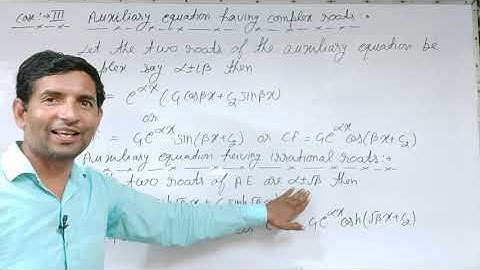 Case:→III Auxiliary equation having complex roots:-
Let the two roots of the auxiliary equation be
complex say α±iβ then
= e^αx (C₁cosβx+C₂sinβx)
or
= C₁e^αx sin(βx+C₂) or CF = C₁e^αx cos(βx+C₂)
Auxiliary equation having irrational roots:-
two roots of A.E. are α±√β then
C₁e^αx cosh(√βx+C₂)